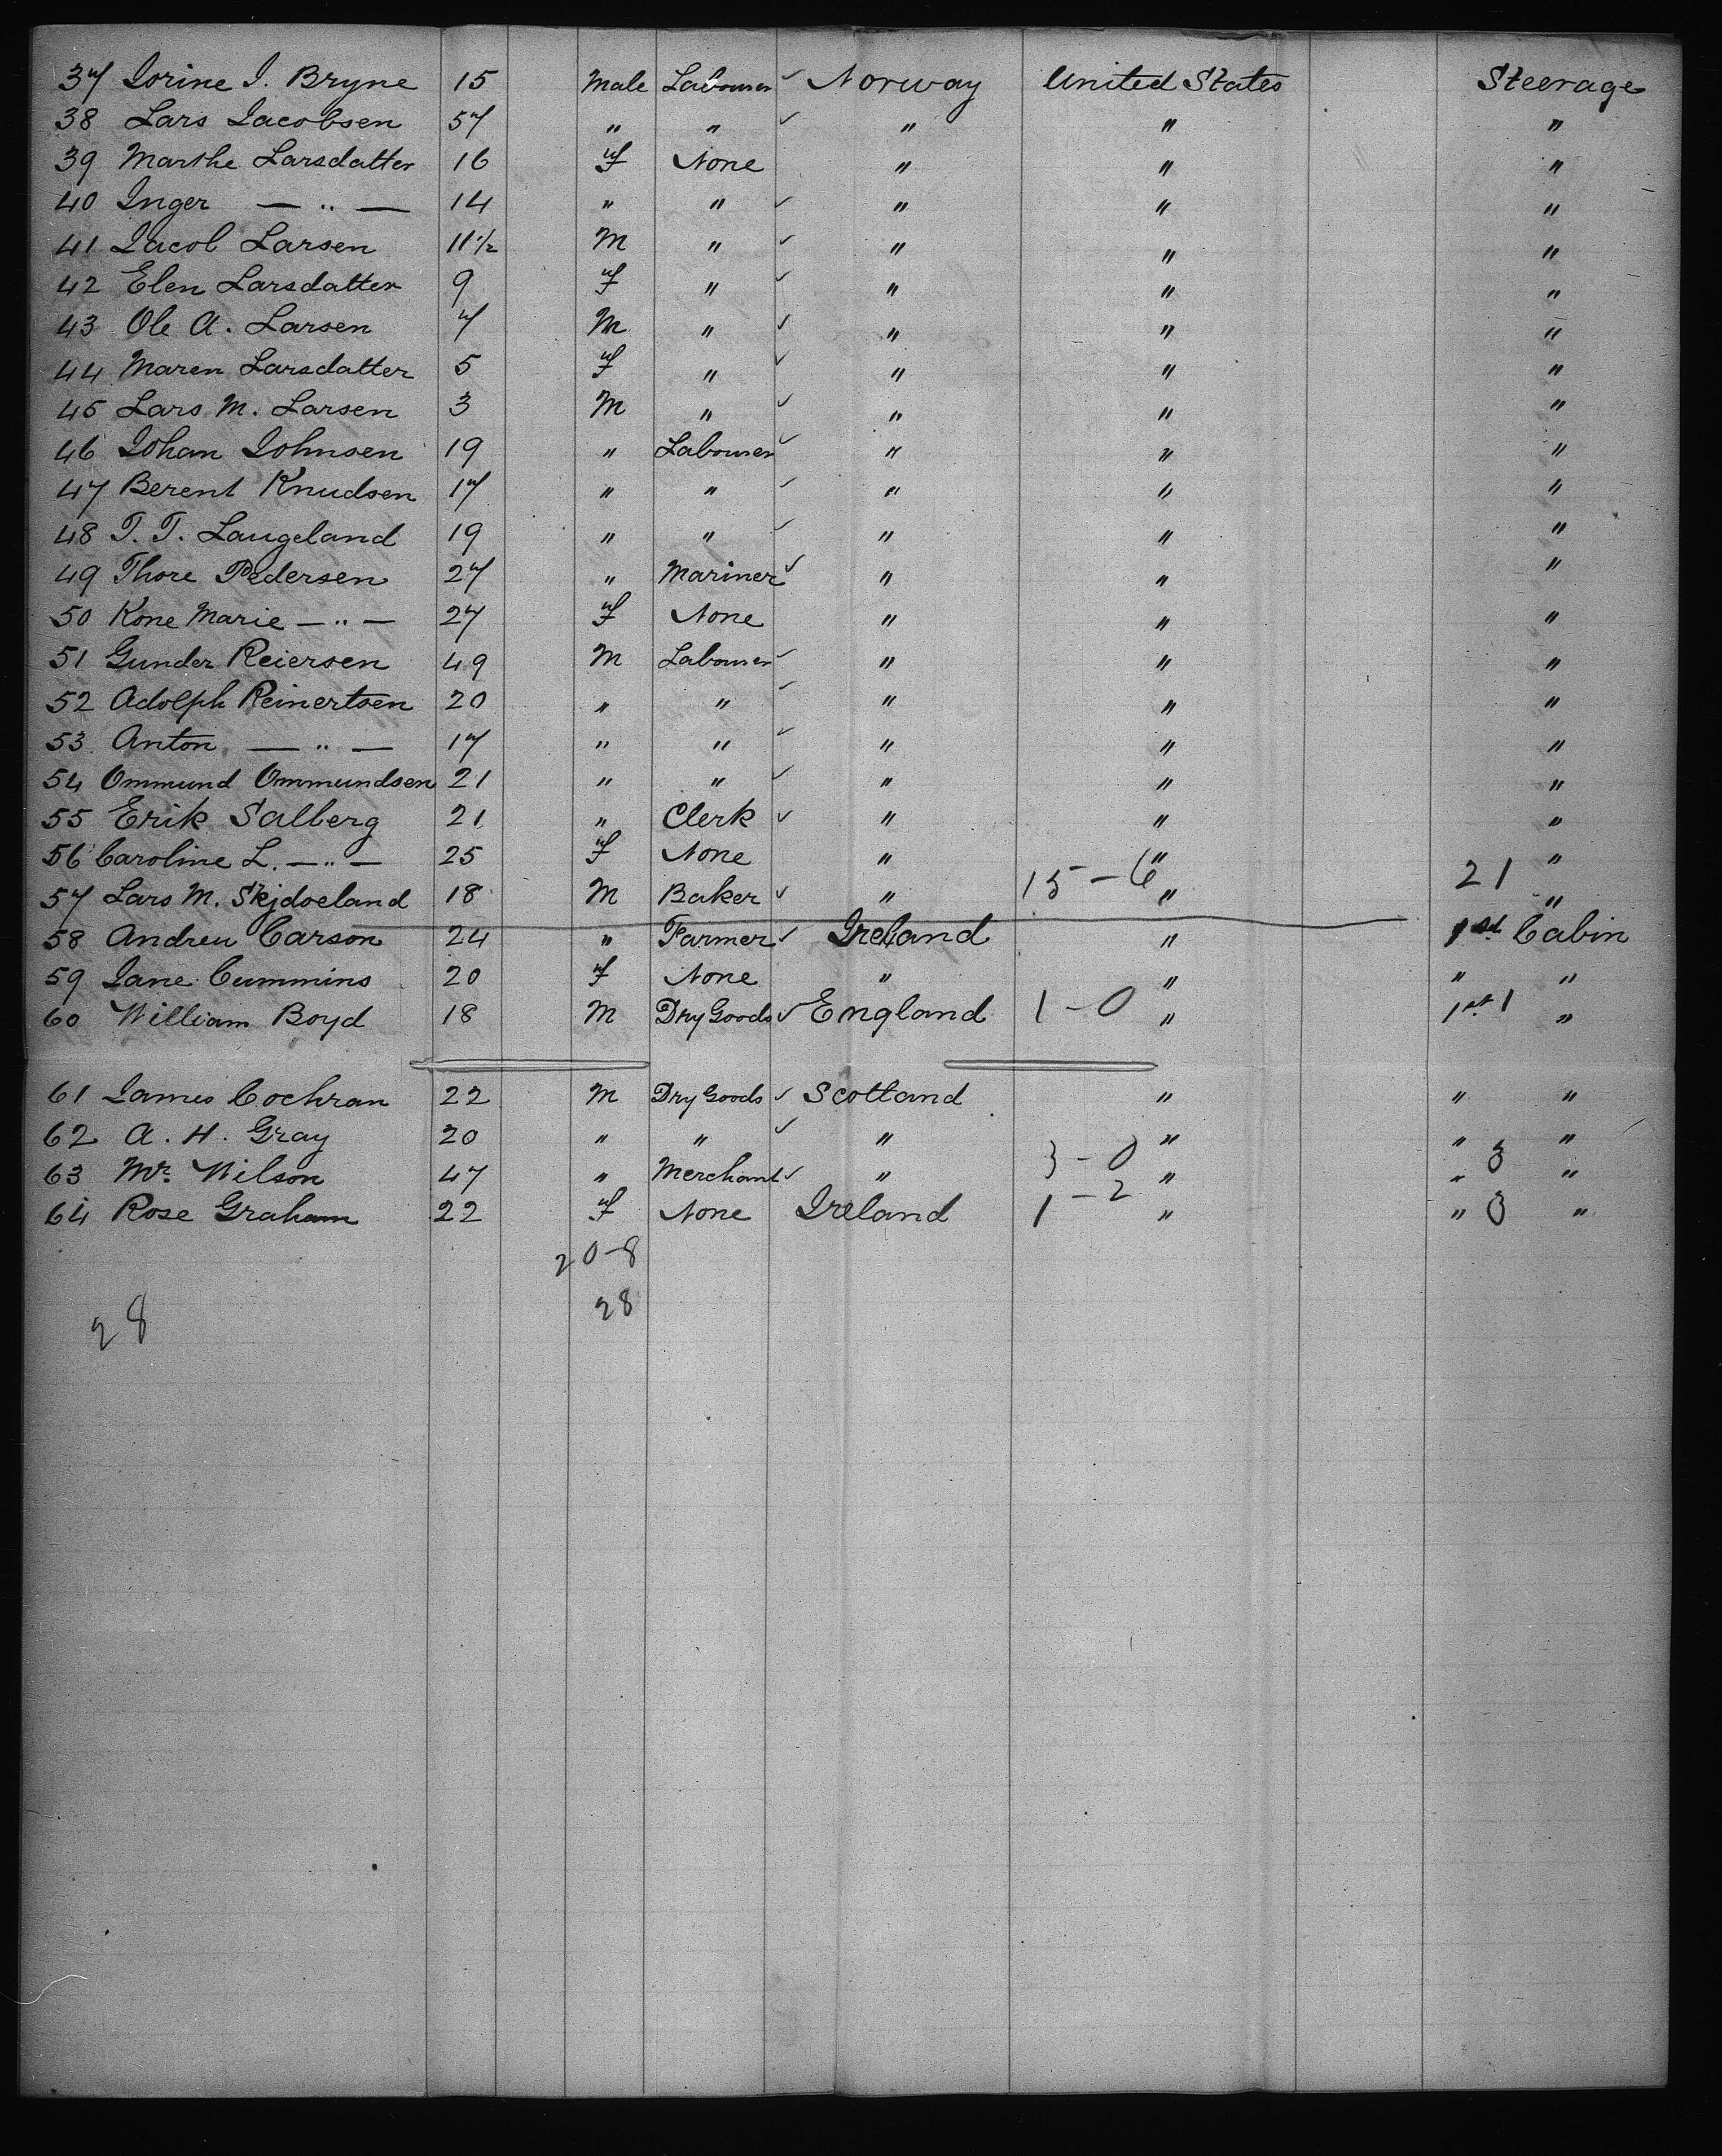 37 Iorine I. Bryne 15 Male Labourer ✓ Norway United States Steerage
38 Lars Iacobsen 57 " " ✓ " " "
39 Marthe Larsdatter 16 F None " " "
40 Inger — " — 14 " " ✓ " " "
41 Iacob Larsen 11 1/2 M " ✓ " " "
42 Elen Larsdatter 9 F " ✓ " " "
43 Ole A. Larsen 7 M " ✓ " " "
44 Maren Larsdatter 5 F " ✓ " " "
45 Lars M. Larsen 3 M " ✓ " " "
46 Iohan Iohnsen 19 " Labourer ✓ " " "
47 Berent Knudsen 17 " " ✓ " " "
48 T. T. Laugeland 19 " " ✓ " " "
49 Thore Pedersen 27 " Mariner ✓ " " "
50 Kone Marie — " — 27 F None " " "
51 Gunder Reiersen 49 M Labourer ✓ " " "
52 Adolph Reinertsen 20 " " ✓ " " "
53 Anton — " — 17 " " ✓ " " "
54 Ommund Ommundsen 21 " " ✓ " " "
55 Erik Salberg 21 " Clerk ✓ " " "
56 Caroline L. — " — 25 F None " " "
57 Lars M. Skjdoeland 18 M Baker ✓ " 15 – 6 " 21 "
58 Andrew Carson 24 " Farmer ✓ Ireland " 1st Cabin
59 Iane Cummins 20 F None " " " "
60 William Boyd 18 M Dry Goods ✓ England 1 – 0 " 1st 1 "
61 Iames Cochran 22 M Dry Goods ✓ Scotland " " "
62 A. H. Gray 20 " " ✓ " " " "
63 Mr. Wilson 47 " Merchant ✓ " 3 – 0 " " 3 "
64 Rose Graham 22 F None Ireland 1 – 2 " " 3 "
20–8
28
28